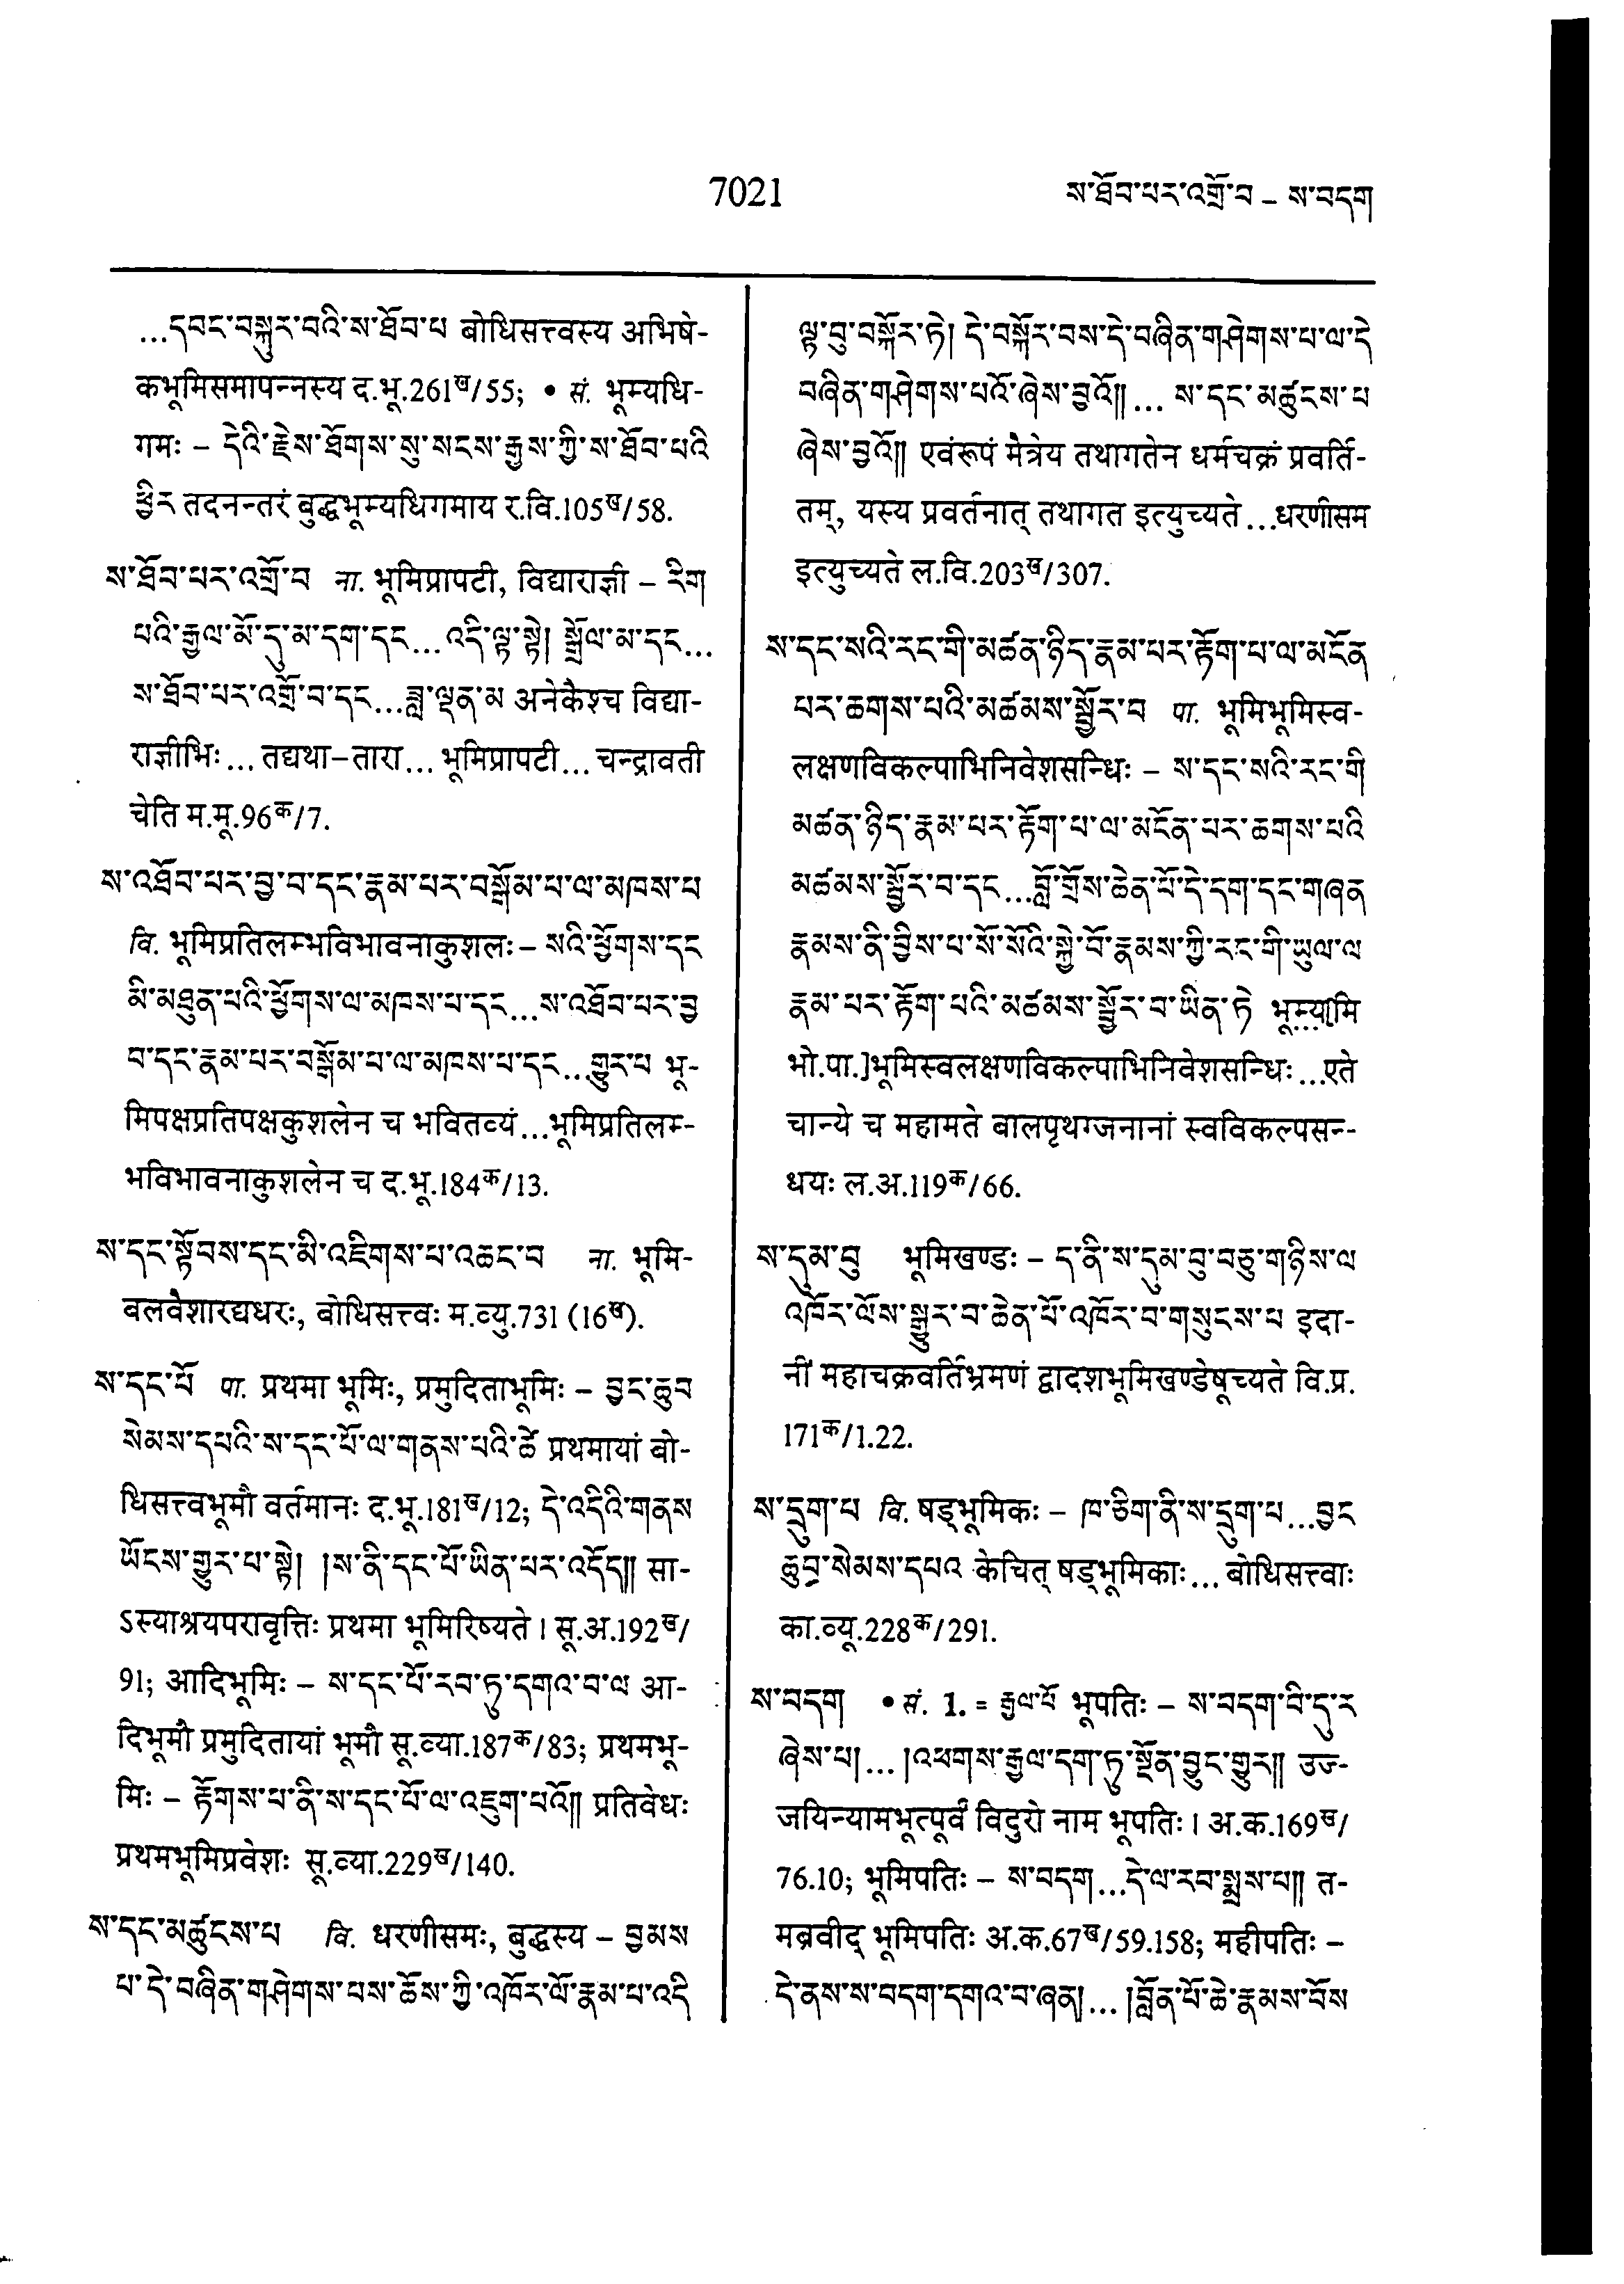 7021
ས་ཐོབ་པར་འགྲོ་བ – ས་བདག
...དབང་བསྐུར་བའི་ས་ཐོབ་པ बोधिसत्त्वस्य अभिषे-
कभूमिसमापन्नस्य द.भू.261ख/55; • सं. भूम्यधि-
गमः – དེའི་རྗེས་ཐོགས་སུ་སངས་རྒྱས་ཀྱི་ས་ཐོབ་པའི
ཕྱིར तदनन्तरं बुद्धभूम्यधिगमाय र.वि.105ख/58.
ས་ཐོབ་པར་འགྲོ་བ ना. भूमिप्रापटी, विद्याराज्ञी – རིག
པའི་རྒྱལ་མོ་དུ་མ་དག་དང...འདི་ལྟ་སྟེ། སྒྲོལ་མ་དང...
ས་ཐོབ་པར་འགྲོ་བ་དང...ཟླ་ལྡན་མ अनेकैश्च विद्या-
राज्ञीभिः... तद्यथा–तारा... भूमिप्रापटी... चन्द्रावती
चेति म.मू.96क/7.
ས་འཐོབ་པར་བྱ་བ་དང་རྣམ་པར་བསྒོམ་པ་ལ་མཁས་པ
वि. भूमिप्रतिलम्भविभावनाकुशलः – སའི་ཕྱོགས་དང
མི་མཐུན་པའི་ཕྱོགས་ལ་མཁས་པ་དང...ས་འཐོབ་པར་བྱ
བ་དང་རྣམ་པར་བསྒོམ་པ་ལ་མཁས་པ་དང...གྱུར་པ भू-
मिपक्षप्रतिपक्षकुशलेन च भवितव्यं...भूमिप्रतिलम्-
भविभावनाकुशलेन च द.भू.184क/13.
ས་དང་སྟོབས་དང་མི་འཇིགས་པ་འཆང་བ ना. भूमि-
बलवैशारद्यधरः, बोधिसत्त्वः म.व्यु.731 (16ख).
ས་དང་པོ पा. प्रथमा भूमिः, प्रमुदिताभूमिः – བྱང་ཆུབ
སེམས་དཔའི་ས་དང་པོ་ལ་གནས་པའི་ཚེ प्रथमायां बो-
धिसत्त्वभूमौ वर्तमानः द.भू.181ख/12; དེ་འདིའི་གནས
ཡོངས་གྱུར་པ་སྟེ། །ས་ནི་དང་པོ་ཡིན་པར་འདོད།། सा-
ऽस्याश्रयपरावृत्तिः प्रथमा भूमिरिष्यते । सू.अ.192ख/
91; आदिभूमिः – ས་དང་པོ་རབ་ཏུ་དགའ་བ་ལ आ-
दिभूमौ प्रमुदितायां भूमौ सू.व्या.187क/83; प्रथमभू-
मिः – རྟོགས་པ་ནི་ས་དང་པོ་ལ་འཇུག་པའོ།། प्रतिवेधः
प्रथमभूमिप्रवेशः सू.व्या.229ख/140.
ས་དང་མཚུངས་པ वि. धरणीसमः, बुद्धस्य – བྱམས
པ་དེ་བཞིན་གཤེགས་པས་ཆོས་ཀྱི་འཁོར་ལོ་རྣམ་པ་འདི
ལྟ་བུ་བསྐོར་ཏེ། དེ་བསྐོར་བས་དེ་བཞིན་གཤེགས་པ་ལ་དེ
བཞིན་གཤེགས་པའོ་ཞེས་བྱའོ།།... ས་དང་མཚུངས་པ
ཞེས་བྱའོ།། एवंरूपं मैत्रेय तथागतेन धर्मचक्रं प्रवर्ति-
तम्, यस्य प्रवर्तनात् तथागत इत्युच्यते...धरणीसम
इत्युच्यते ल.वि.203ख/307.
ས་དང་སའི་རང་གི་མཚན་ཉིད་རྣམ་པར་རྟོག་པ་ལ་མངོན
པར་ཆགས་པའི་མཚམས་སྦྱོར་བ पा. भूमिभूमिस्व-
लक्षणविकल्पाभिनिवेशसन्धिः – ས་དང་སའི་རང་གི
མཚན་ཉིད་རྣམ་པར་རྟོག་པ་ལ་མངོན་པར་ཆགས་པའི
མཚམས་སྦྱོར་བ་དང...བློ་གྲོས་ཆེན་པོ་དེ་དག་དང་གཞན
རྣམས་ནི་བྱིས་པ་སོ་སོའི་སྐྱེ་བོ་རྣམས་ཀྱི་རང་གི་ཡུལ་ལ
རྣམ་པར་རྟོག་པའི་མཚམས་སྦྱོར་བ་ཡིན་ཏེ भूम्या[मि
भो.पा.]भूमिस्वलक्षणविकल्पाभिनिवेशसन्धिः...एते
चान्ये च महामते बालपृथग्जनानां स्वविकल्पसन्-
धयः ल.अ.119क/66.
ས་དུམ་བུ भूमिखण्डः – ད་ནི་ས་དུམ་བུ་བཅུ་གཉིས་ལ
འཁོར་ལོས་སྒྱུར་བ་ཆེན་པོ་འཁོར་བ་གསུངས་པ इदा-
नीं महाचक्रवर्तिभ्रमणं द्वादशभूमिखण्डेषूच्यते वि.प्र.
171क/1.22.
ས་དྲུག་པ वि. षड्भूमिकः – ཁ་ཅིག་ནི་ས་དྲུག་པ...བྱང
ཆུབ་སེམས་དཔའ केचित् षड्भूमिकाः... बोधिसत्त्वाः
का.व्यू.228क/291.
ས་བདག • सं. 1. = རྒྱལ་པོ भूपतिः – ས་བདག་བི་དུ་ར
ཞེས་པ།... །འཕགས་རྒྱལ་དག་ཏུ་སྔོན་བྱུང་གྱུར།། उज्-
जयिन्यामभूत्पूर्वं विदुरो नाम भूपतिः । अ.क.169ख/
76.10; भूमिपतिः – ས་བདག...དེ་ལ་རབ་སྨྲས་པ།། त-
मब्रवीद् भूमिपतिः अ.क.67ख/59.158; महीपतिः –
དེ་ནས་ས་བདག་དགའ་བ་ཞན།... །བློན་པོ་ཆེ་རྣམས་བོས